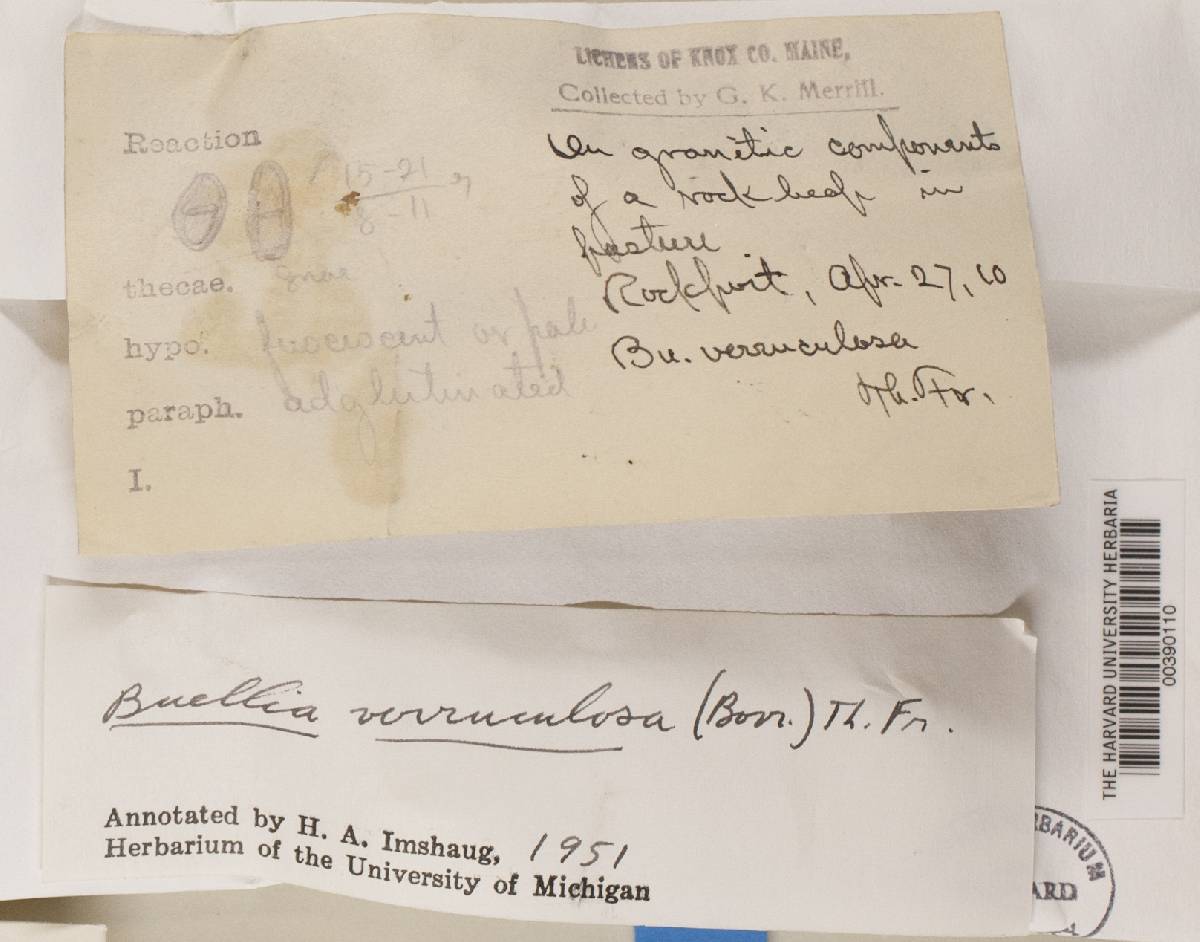 LICHENS OF KNOX CO. MAINE,
Collected by G. K. Merrill.
On granitic components
of a rock heap in
pasture
Rockport, Apr. 27, 10
Bu. verruculosa
Th. Fr.
Reaction
15-21
8-11
thecae.
hypo. fuscescent or pale
paraph. adglutinated
I.
Buellia verruculosa (Borr.) Th. Fr.
Annotated by H. A. Imshaug, 1951
Herbarium of the University of Michigan
THE HARVARD UNIVERSITY HERBARIA
00390110